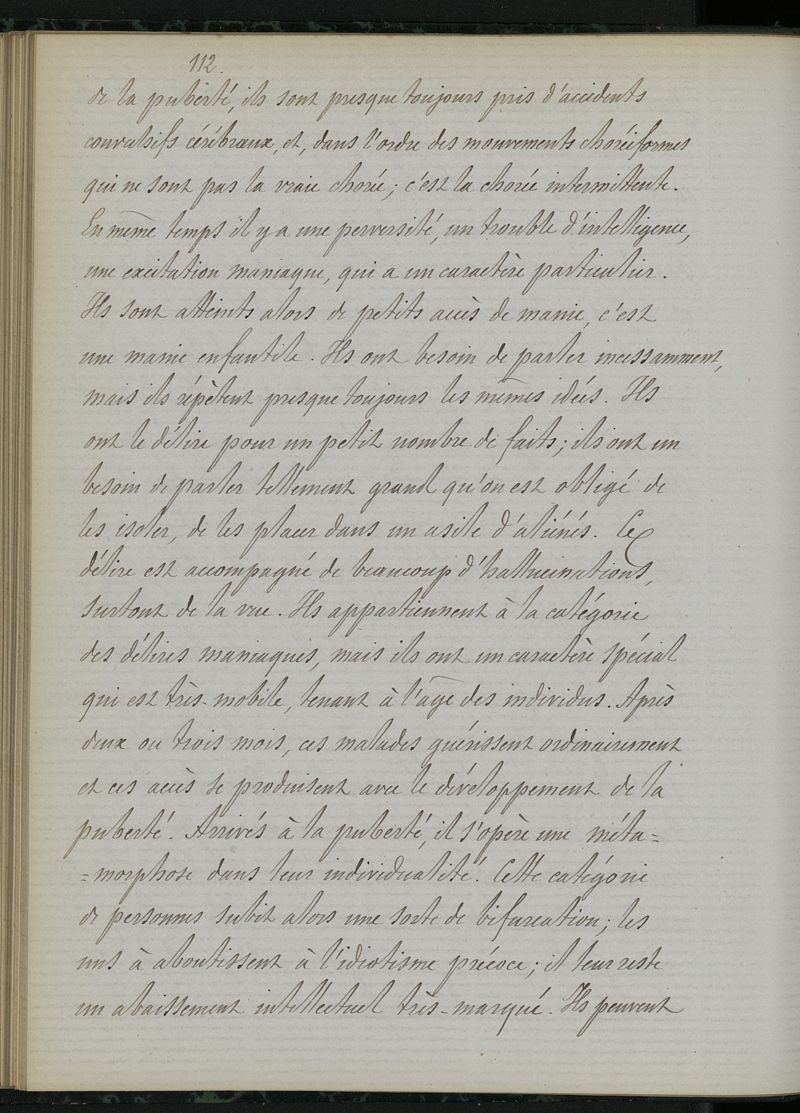 112.
de la puberté, ils sont presque toujours pris d'accidents
convulsifs cérébraux, et, dans l'ordre des mouvements choréiformes
qui ne sont pas la vraie chorée; c'est la chorée intermittente.
En même temps il y a une perversité, un trouble d'intelligence,
une excitation maniaque, qui a un caractère particulier.
Ils sont atteints alors de petits accès de manie, c'est
une manie enfantile. Ils ont besoin de parler incessamment,
mais ils répètent presque toujours les mêmes idées. Ils
ont le délire pour un petit nombre de faits; ils ont un
besoin de parler tellement grand qu'on est obligé de
les isoler, de les placer dans un asile d'aliénés. Ce
délire est accompagné de beaucoup d'hallucinations,
surtout de la vue. Ils appartiennent à la catégorie
des délires maniaques, mais ils ont un caractère spécial
qui est très-mobile, tenant à l'âge des individus. Après
deux ou trois mois, ces malades guérissent ordinairement
et ces accès se produisent avec le développement de la
puberté. Arrivés à la puberté, il s'opère une méta=
=morphose dans leur individualité. Cette catégorie
de personnes subit alors une sorte de bifurcation; les
uns à aboutissent à l'idiotisme précoce; il leur reste
un abaissement intellectuel très-marqué. Ils peuvent